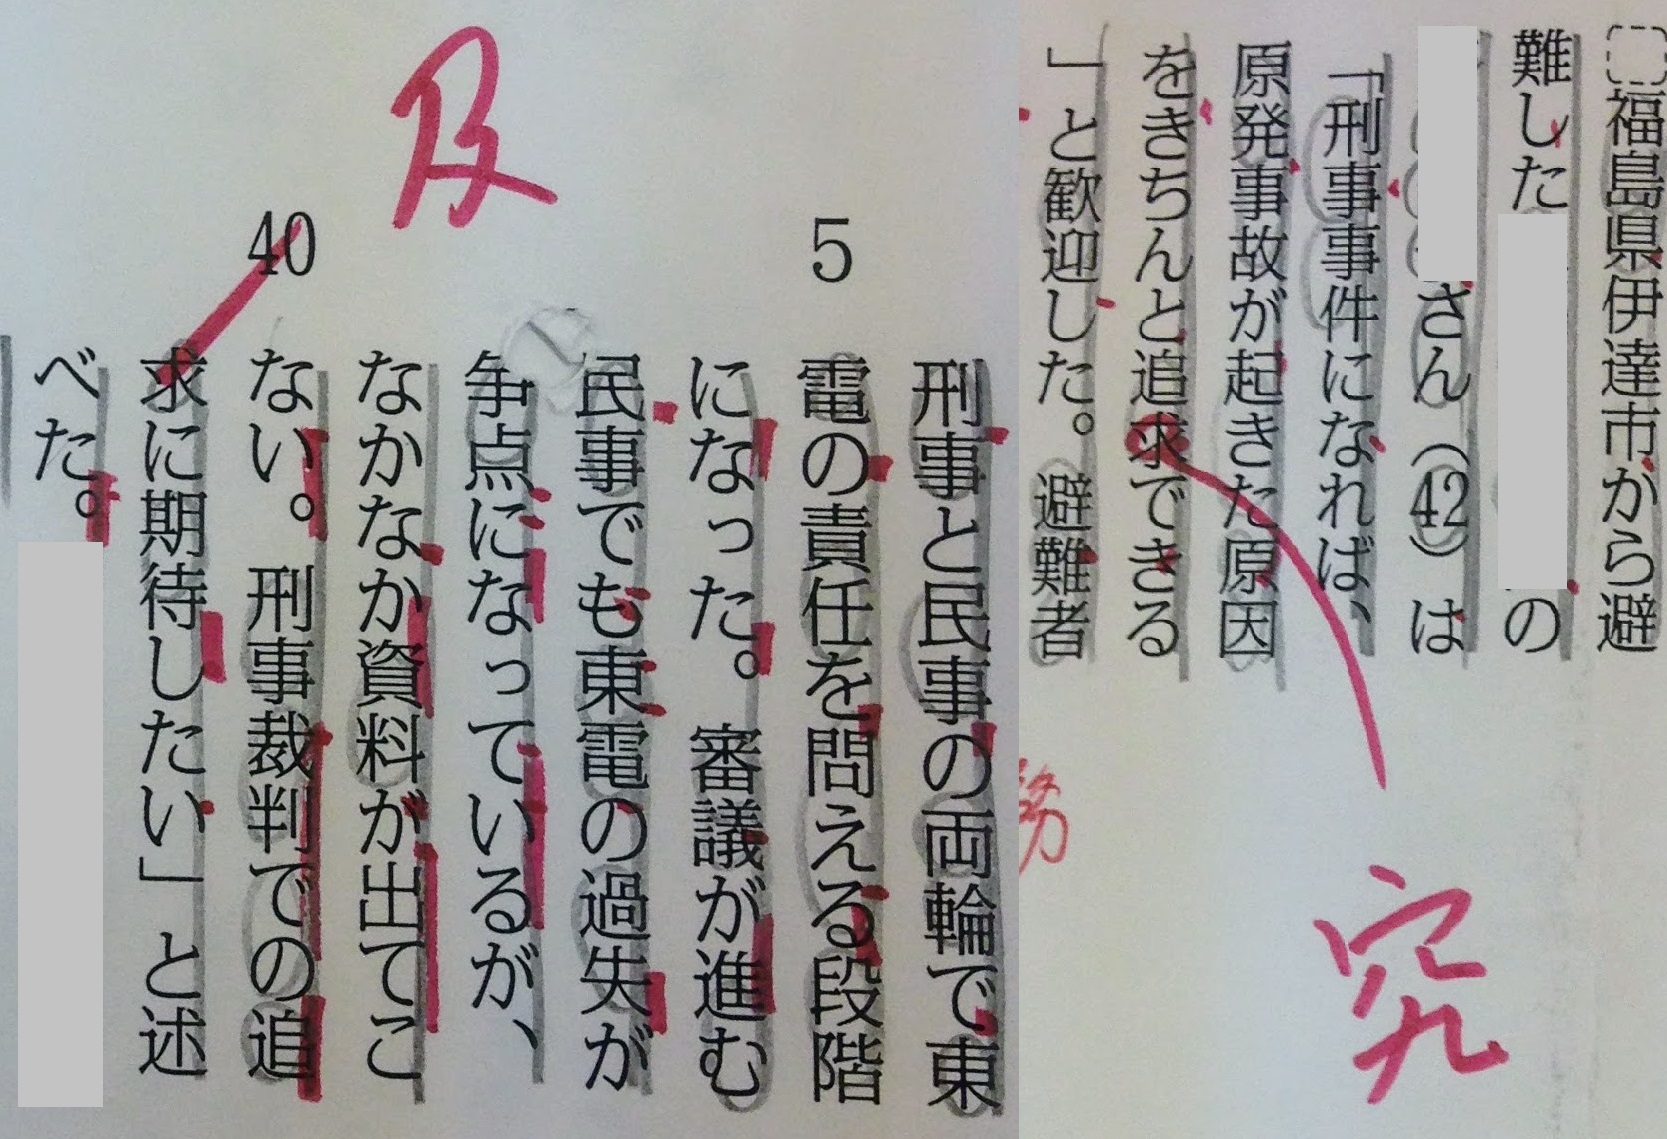 福島県伊達市から避
難した
の
さん（42）は
「刑事事件になれば、
原発事故が起きた原因
をきちんと追求できる
」と歓迎した。避難者
究
5
刑事と民事の両輪で東
電の責任を問える段階
になった。審議が進む
民事でも東電の過失が
争点になっているが、
なかなか資料が出てこ
ない。刑事裁判での追
求に期待したい」と述
べた。
40
及